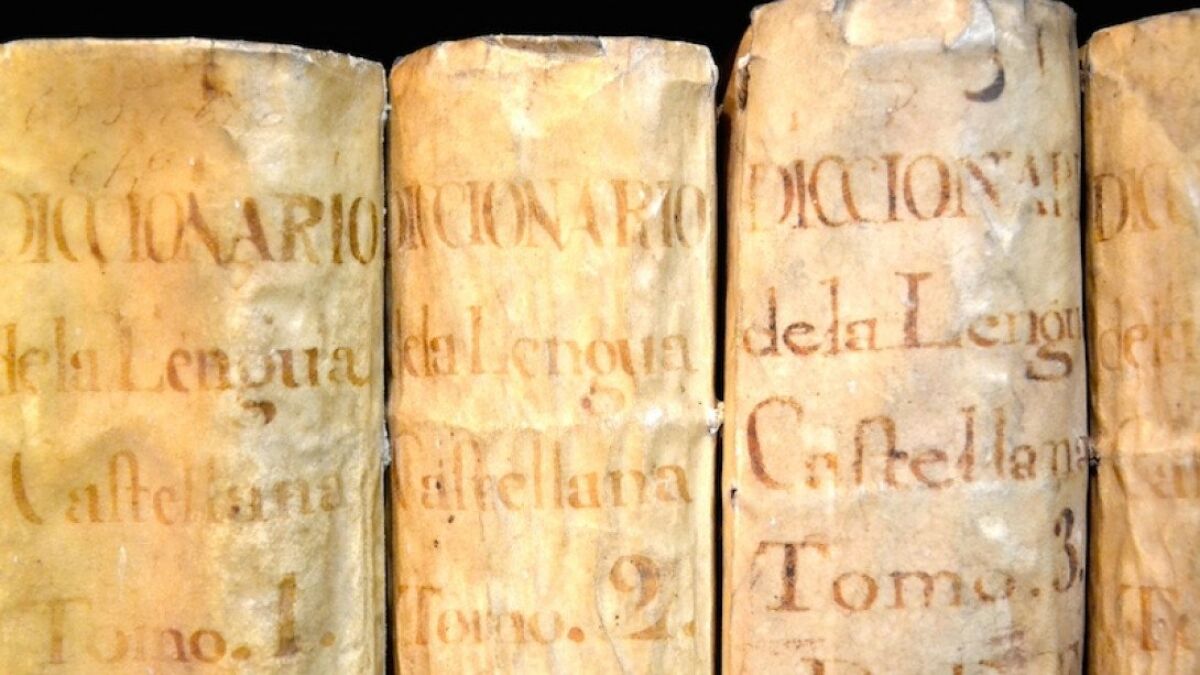 DICCIONARIO
dela Lengua
Caſtellana
Tomo. 1.
DICCIONARIO
dela Lengua
Caſtellana
Tomo. 2.
DICCIONAR
dela Lengu
Caſtellana
Tomo. 3.
DICC
dela
To